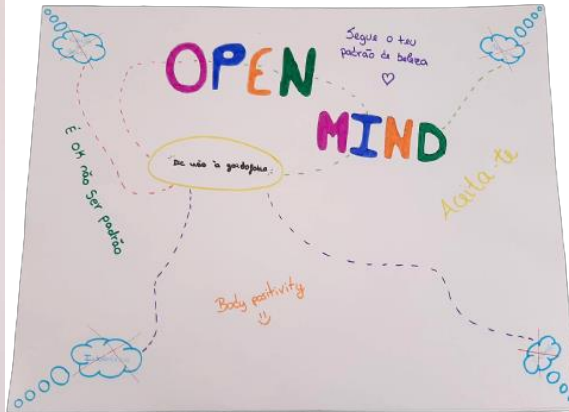 OPEN
MIND
Segue o teu
padrão de beleza
É OK não ser padrão
Diz não à gordofobia
Aceita-te
Body positivity